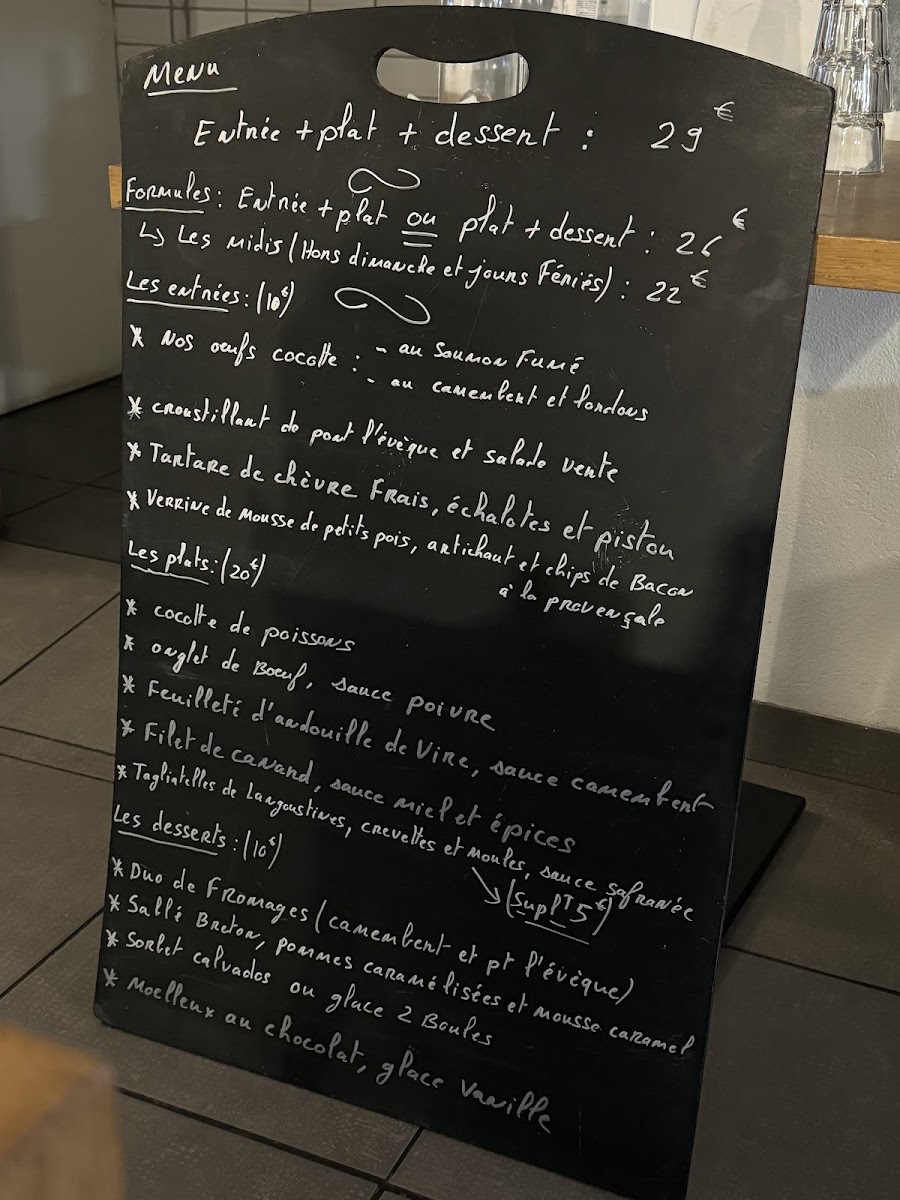 Menu
Entrée + plat + dessert : 29€
Formules : Entrée + plat ou plat + dessert : 26€
↳ Les midis (Hors dimanche et jours Fériés) : 22€
Les entrées : (10€)
* Nos oeufs cocotte : - au Saumon Fumé
- au camembert et lardons
* croustillant de pont l'évèque et salade verte
* Tartare de chèvre Frais, échalotes et pistou
* Verrine de mousse de petits pois, artichaut et chips de Bacon
à la provençale
Les plats : (20€)
* cocotte de poissons
* onglet de Boeuf, sauce poivre
* Feuilleté d'andouille de Vire, sauce camembert
* Filet de canard, sauce miel et épices
* Tagliatelles de Langoustines, crevettes et moules, sauce safranée
→ (SuplT 5€)
Les desserts : (10€)
* Duo de Fromages (camembert et pt l'évèque)
* Sallé Breton, pommes caramélisées et mousse caramel
* Sorbet calvados ou glace 2 Boules
* Moelleux au chocolat, glace Vanille